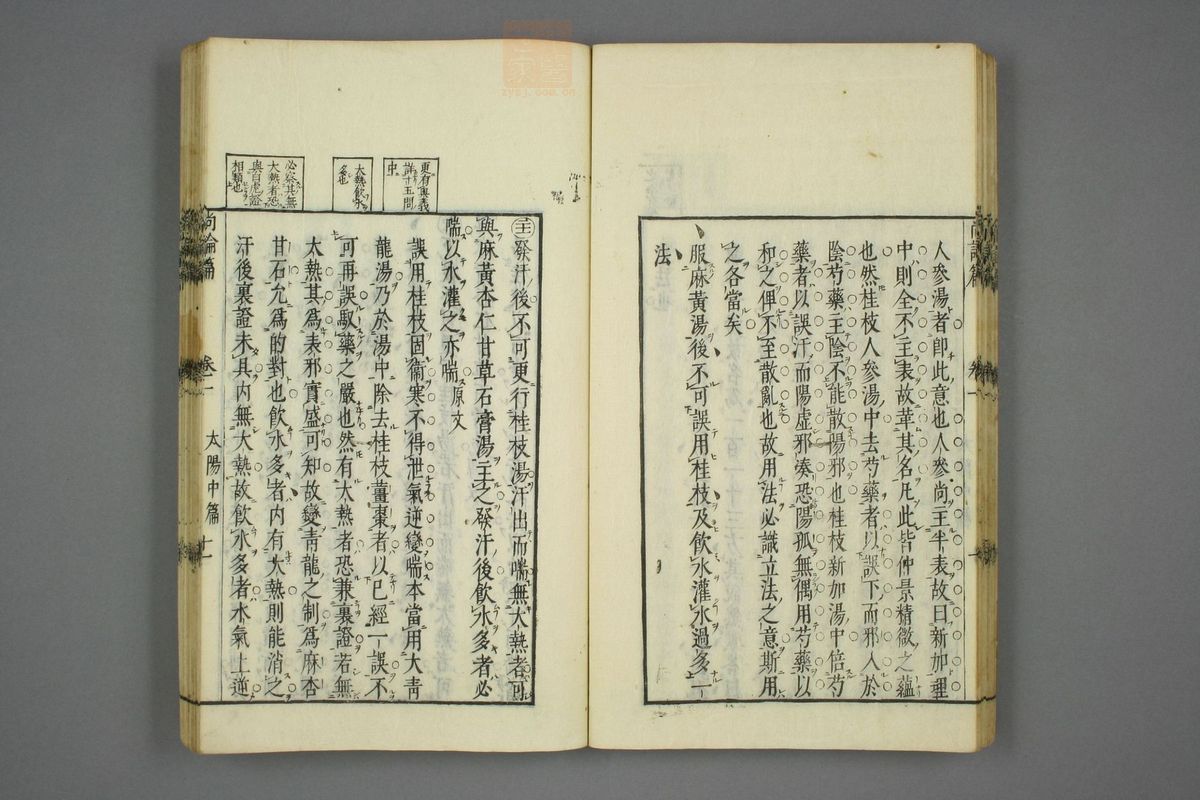 人參湯者卽此意也人參尚主半表故曰新加理
中則全不主表故革其名凡此皆仲景精微之蘊
也然桂枝人參湯中去芍藥者以誤下而邪入於
陰芍藥主陰不能散陽邪也桂枝新加湯中倍芍
藥者以誤汗而陽虛邪湊恐陽孤無偶用芍藥以
和之俾不至散亂也故用法必識立法之意斯用
之各當矣
服麻黃湯後不可誤用桂枝及飲水灌水過多一
法
更有奧義
詳十五問
中
大熱飲水
多也
必察其無
大熱者恐
與白虎證
相類也
發汗後不可更行桂枝湯汗出而喘無大熱者可
與麻黃杏仁甘草石膏湯主之發汗後飲水多者必
喘以水灌之亦喘原文
誤用桂枝固衞寒不得泄氣逆變喘本當用大靑
龍湯乃於湯中除去桂枝薑棗者以已經一誤不
可再誤馭藥之嚴也然有大熱者恐兼裏證若無
大熱其爲表邪實盛可知故變靑龍之制爲麻杏
甘石允爲的對也飲水多者內有大熱則能消之
汗後裏證未具內無大熱故飲水多者水氣上逆
尚論篇 卷一 太陽中篇 十一
家醫
zysj.com.cn